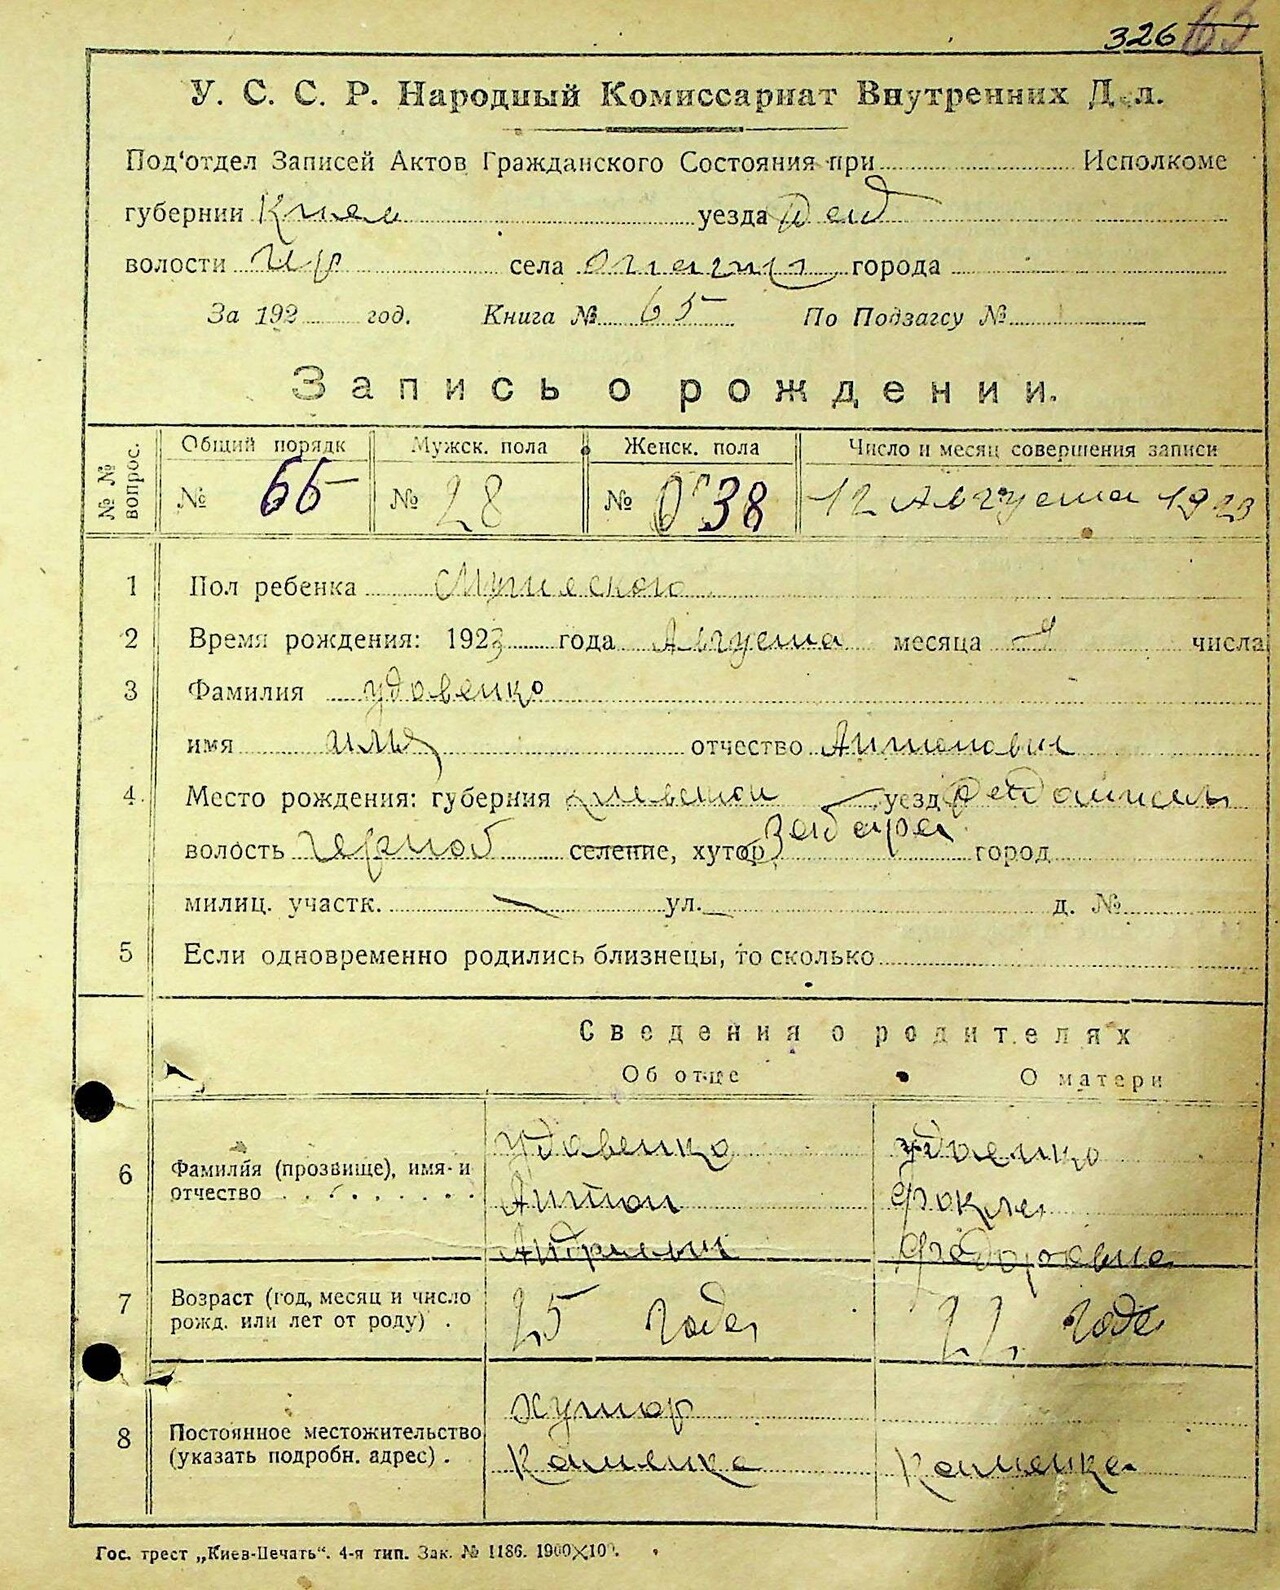 326 65
У. С. С. Р. Народный Комиссариат Внутренних Дел.
Под'отдел Записей Актов Гражданского Состояния при Исполкоме
губернии Киев уезда
волости села города
За 192 год. Книга № 65 По Подзагсу №
Запись о рождении.
№№ вопрос. Общий порядк Мужск. пола Женск. пола Число и месяц совершения записи
№ 65 № 28 № 38 12 Августа 1923
1 Пол ребенка Мужеского
2 Время рождения: 1923 года Августа месяца 9 числа
3 Фамилия Удовенко
имя Илья отчество Антонович
4 Место рождения: губерния Киевской уезд
волость Черноб селение, хутор город
милиц. участк. ул. д. №
5 Если одновременно родились близнецы, то сколько
Сведения о родителях
Об отце О матери
Удовенко Удовенко
6 Фамилия (прозвище), имя и отчество Антон Фокла
Федоровна
7 Возраст (год, месяц и число рожд. или лет от роду) 25 года 22 года
хутор
8 Постоянное местожительство (указать подробн. адрес) Каменка Каменка
Гос. трест „Киев-Печать“. 4-я тип. Зак. № 1186. 1900×100.